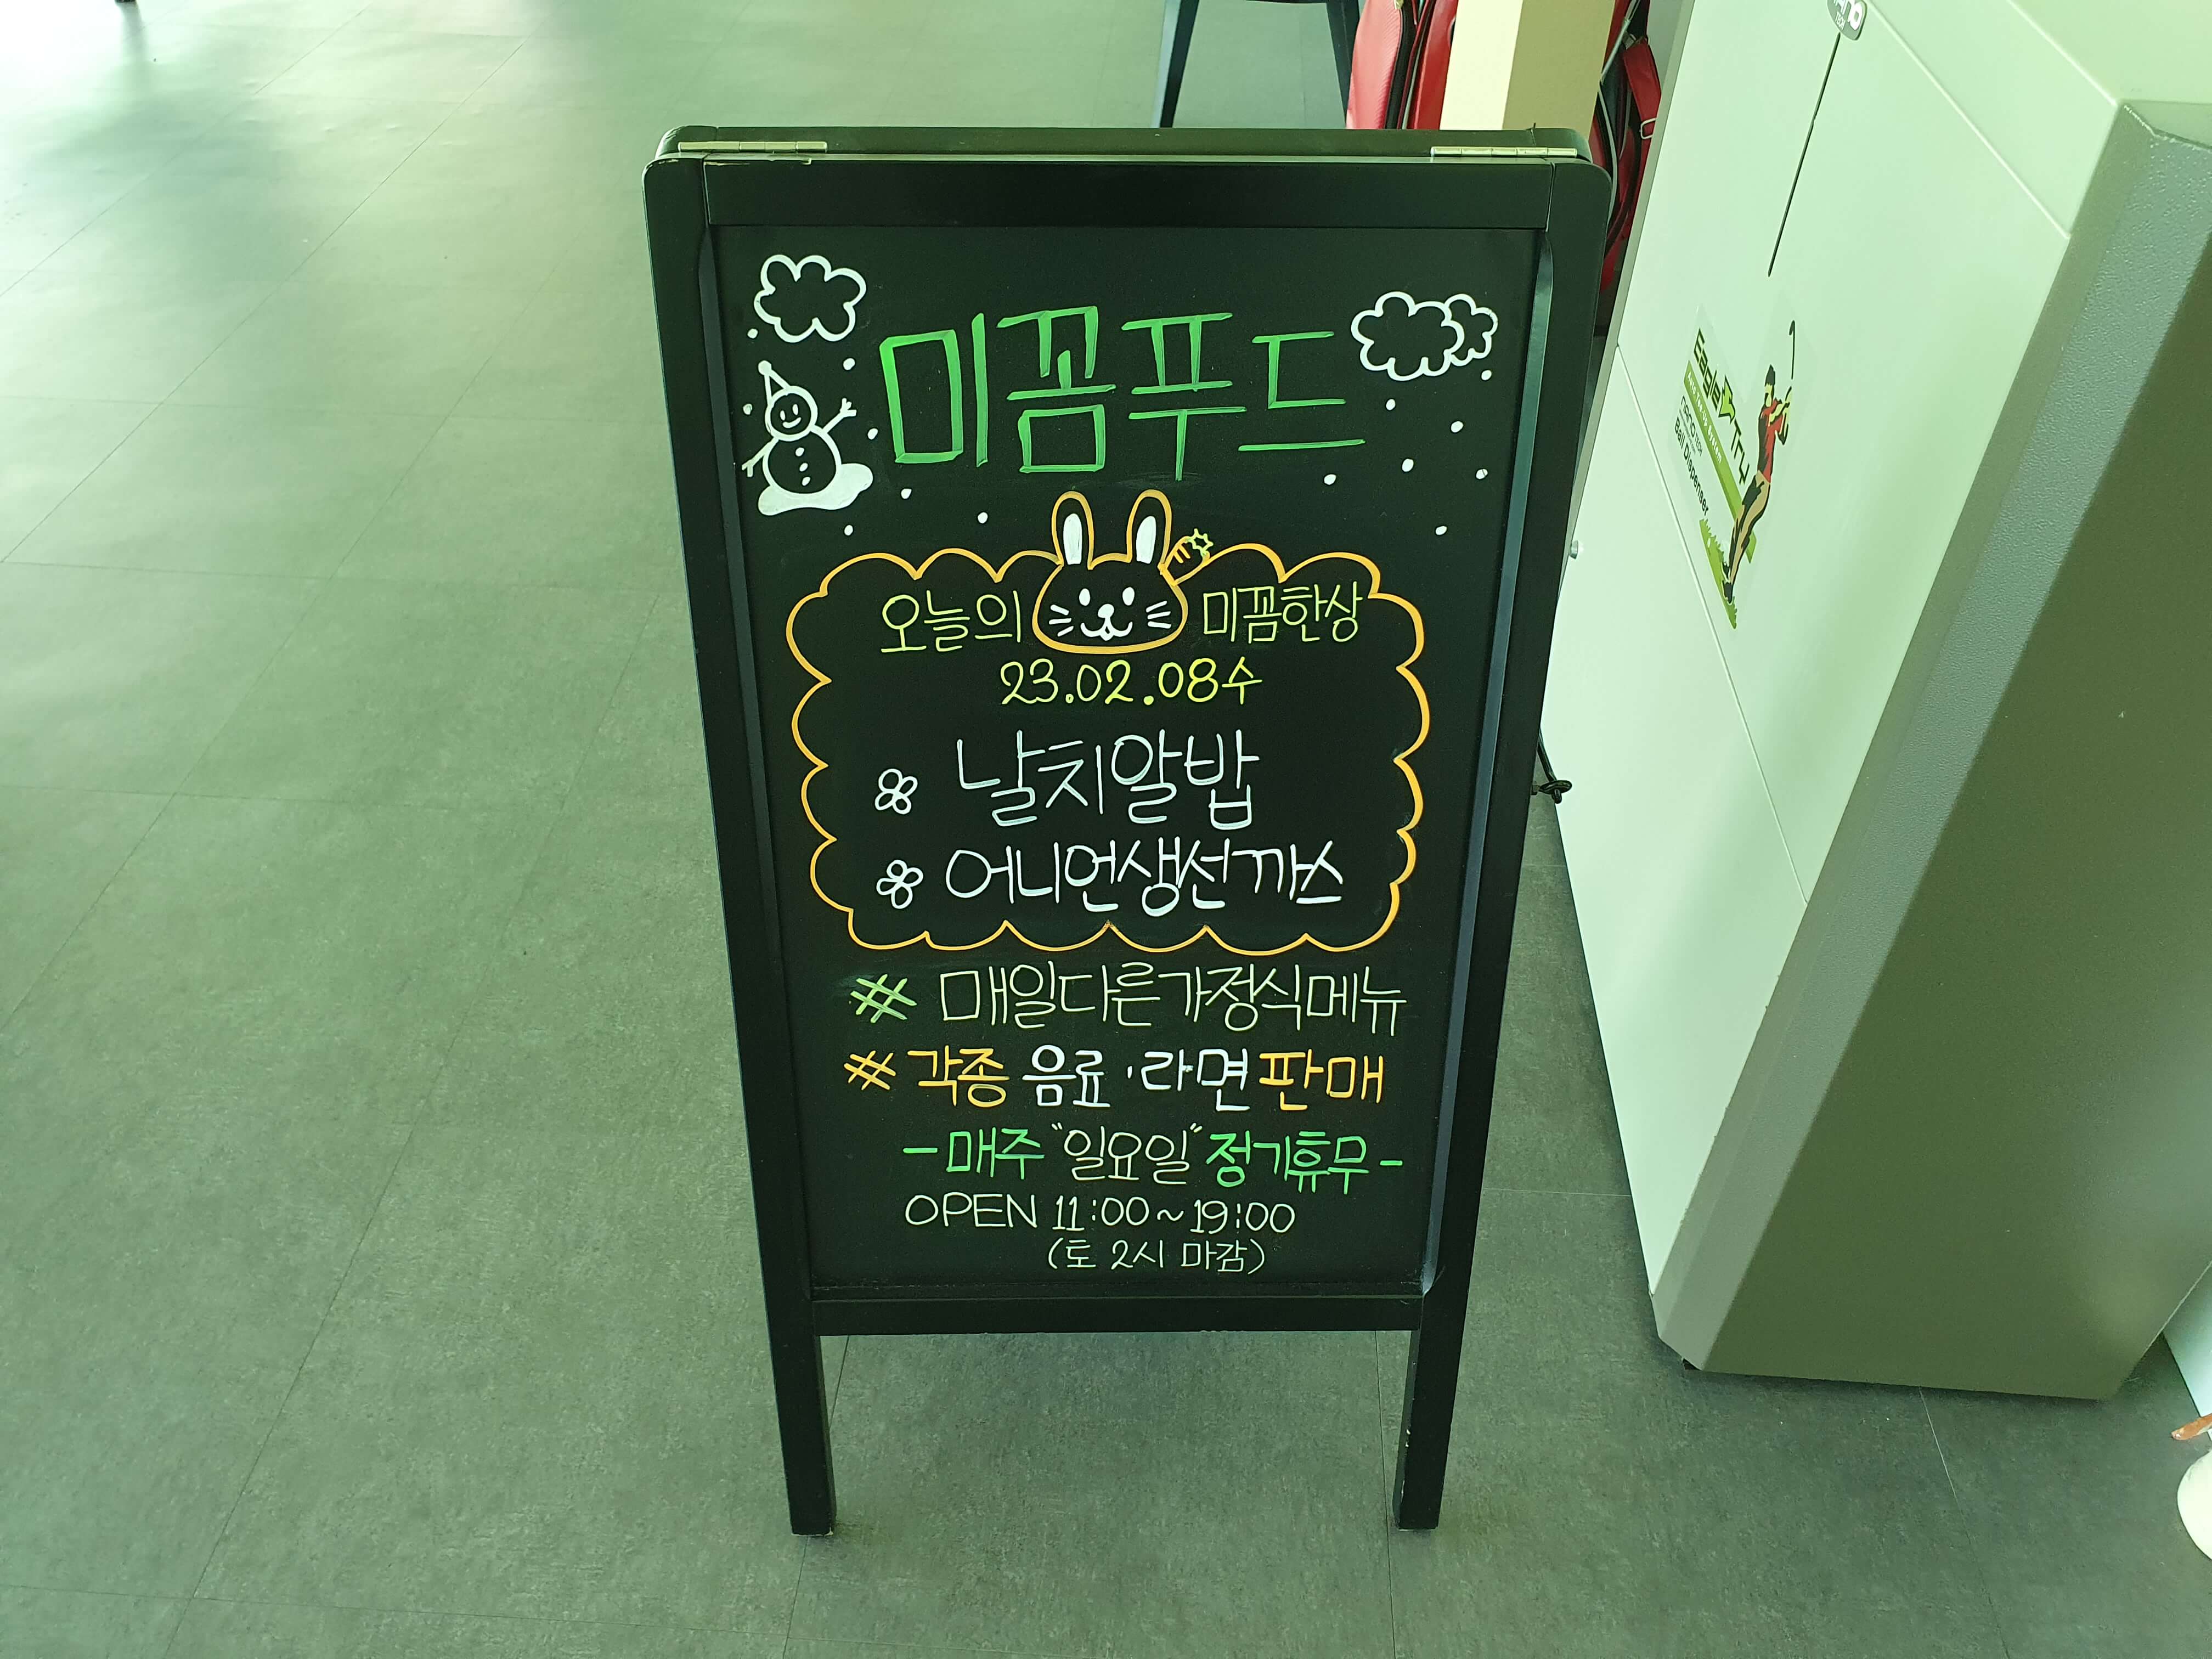 미꼼푸드
오늘의 미꼼한상
23.02.08수
날치알밥
어니언생선까스
# 매일다른가정식메뉴
# 각종 음료·라면판매
-매주 "일요일" 정기휴무-
OPEN 11:00~19:00
(토 2시 마감)
Eagle Try
Ball Dispenser